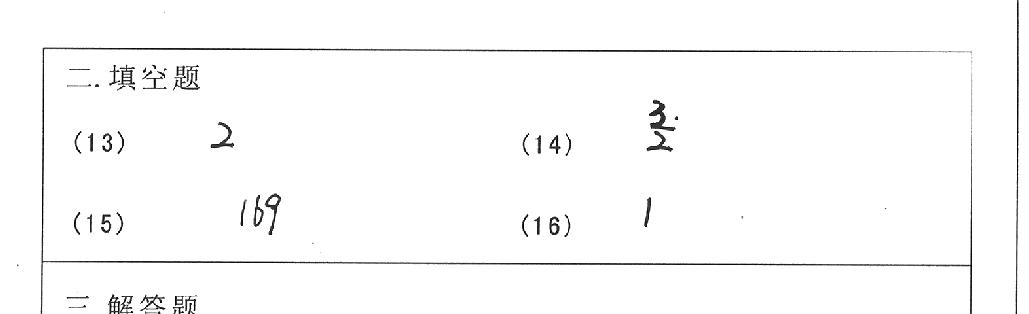 二.填空题
(13) 2 (14) 3/2
(15) 169 (16) 1
三 解答题